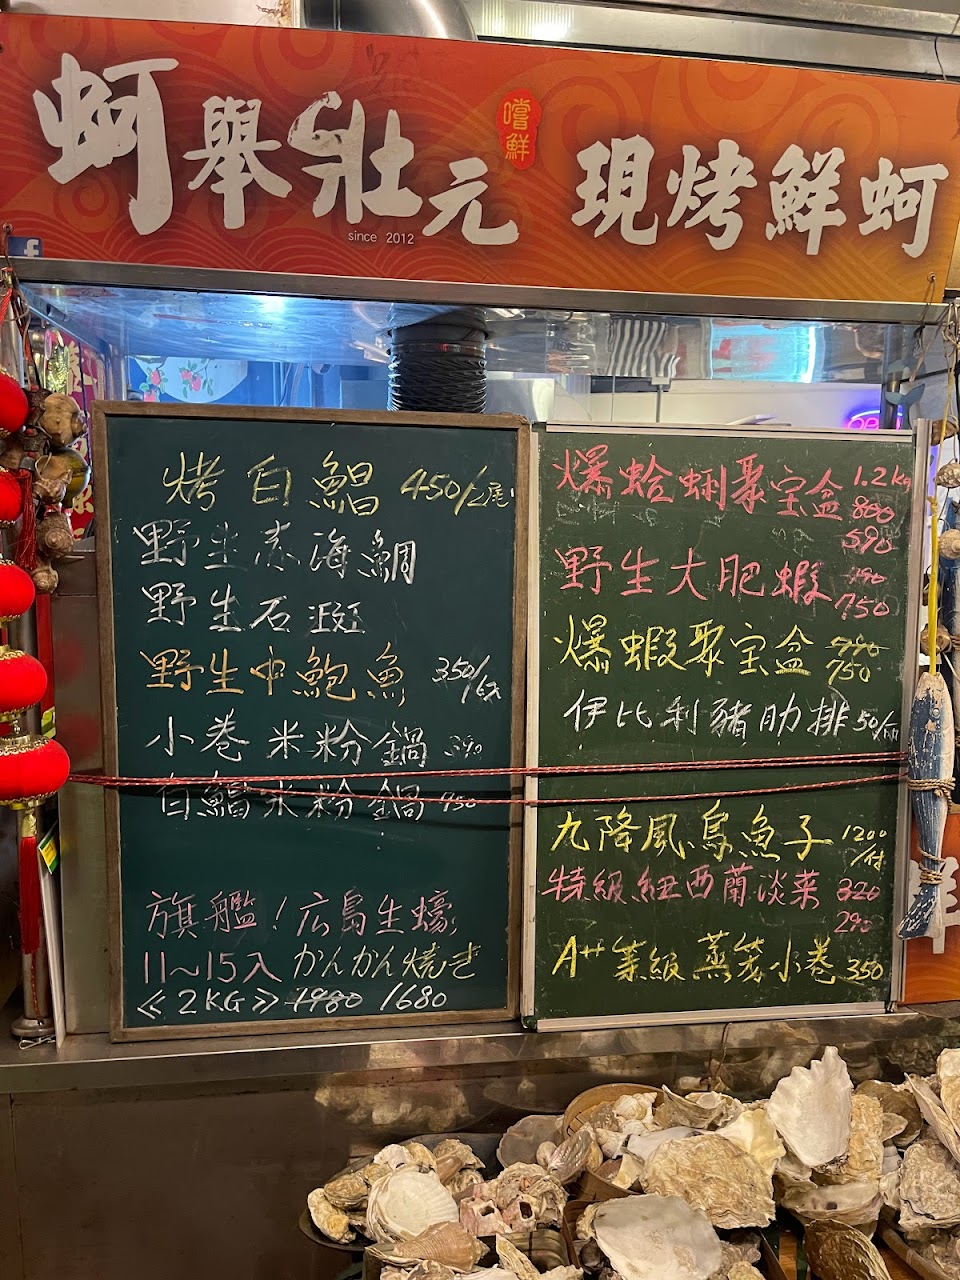 蚵舉壯元
嚐鮮
現烤鮮蚵
since 2012
烤白鯧 450/2尾
野生赤海鯛
野生石斑
野生中鮑魚 350/6
小卷米粉鍋 390
白鯧米粉鍋 750
旗艦!広島生蠔
11~15入 かんかん焼き
≪2KG≫ 1980 1680
爆蛤蜊聚宝盆 1.2kg
800
590
野生大肥蝦 790
750
爆蝦聚宝盆 990
750
伊比利豬肋排 50/
九降風烏魚子 1200
/付
特級紐西蘭淡菜 320
290
A++等級蒸籠小卷 350